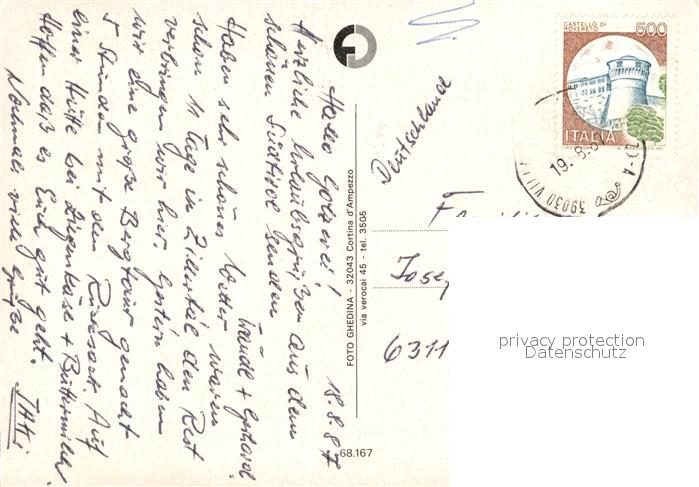 Hallo Golserei! 18.8.87
Herzliche Urlaubsgrüße aus dem
schönen Südtirol senden
Traudl + Gerhard
Haben sehr schönes Wetter waren
schon 11 Tage in Zillertal den Rest
verbringen wir hier. Gestern haben
wir eine große Bergtour gemacht
5 Stunden mit dem Rucksack. Auf
einer Hütte bei Ziegenkäse + Buttermilch
Hoffen daß es Euch gut geht.
Nochmals viele Grüße
FOTO GHEDINA - 32043 Cortina d'Ampezzo
via verocai 45 - tel. 3505
68.167
Deutschland
CASTELLO DI
ROVERETO
500
ITALIA
19.8.8
39030
Josep
6311
privacy protection
Datenschutz